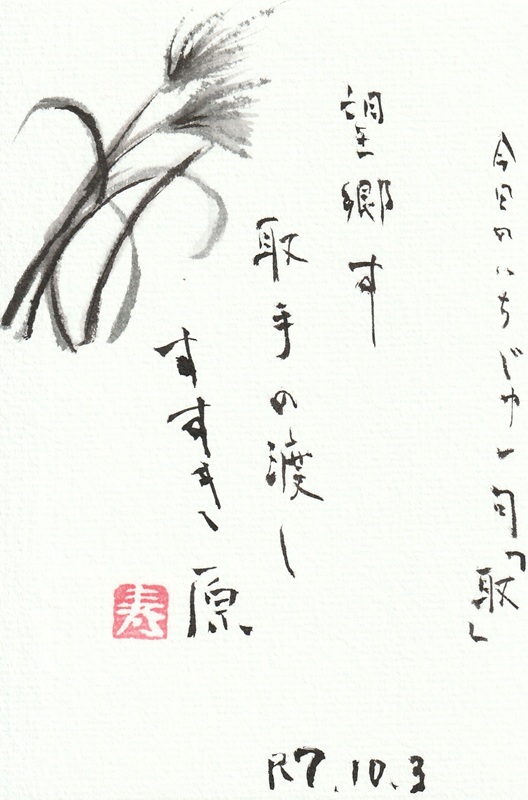 今日のいちじゅん句「取」
望郷す
取手の渡し
すすき原
寿
R7.10.3